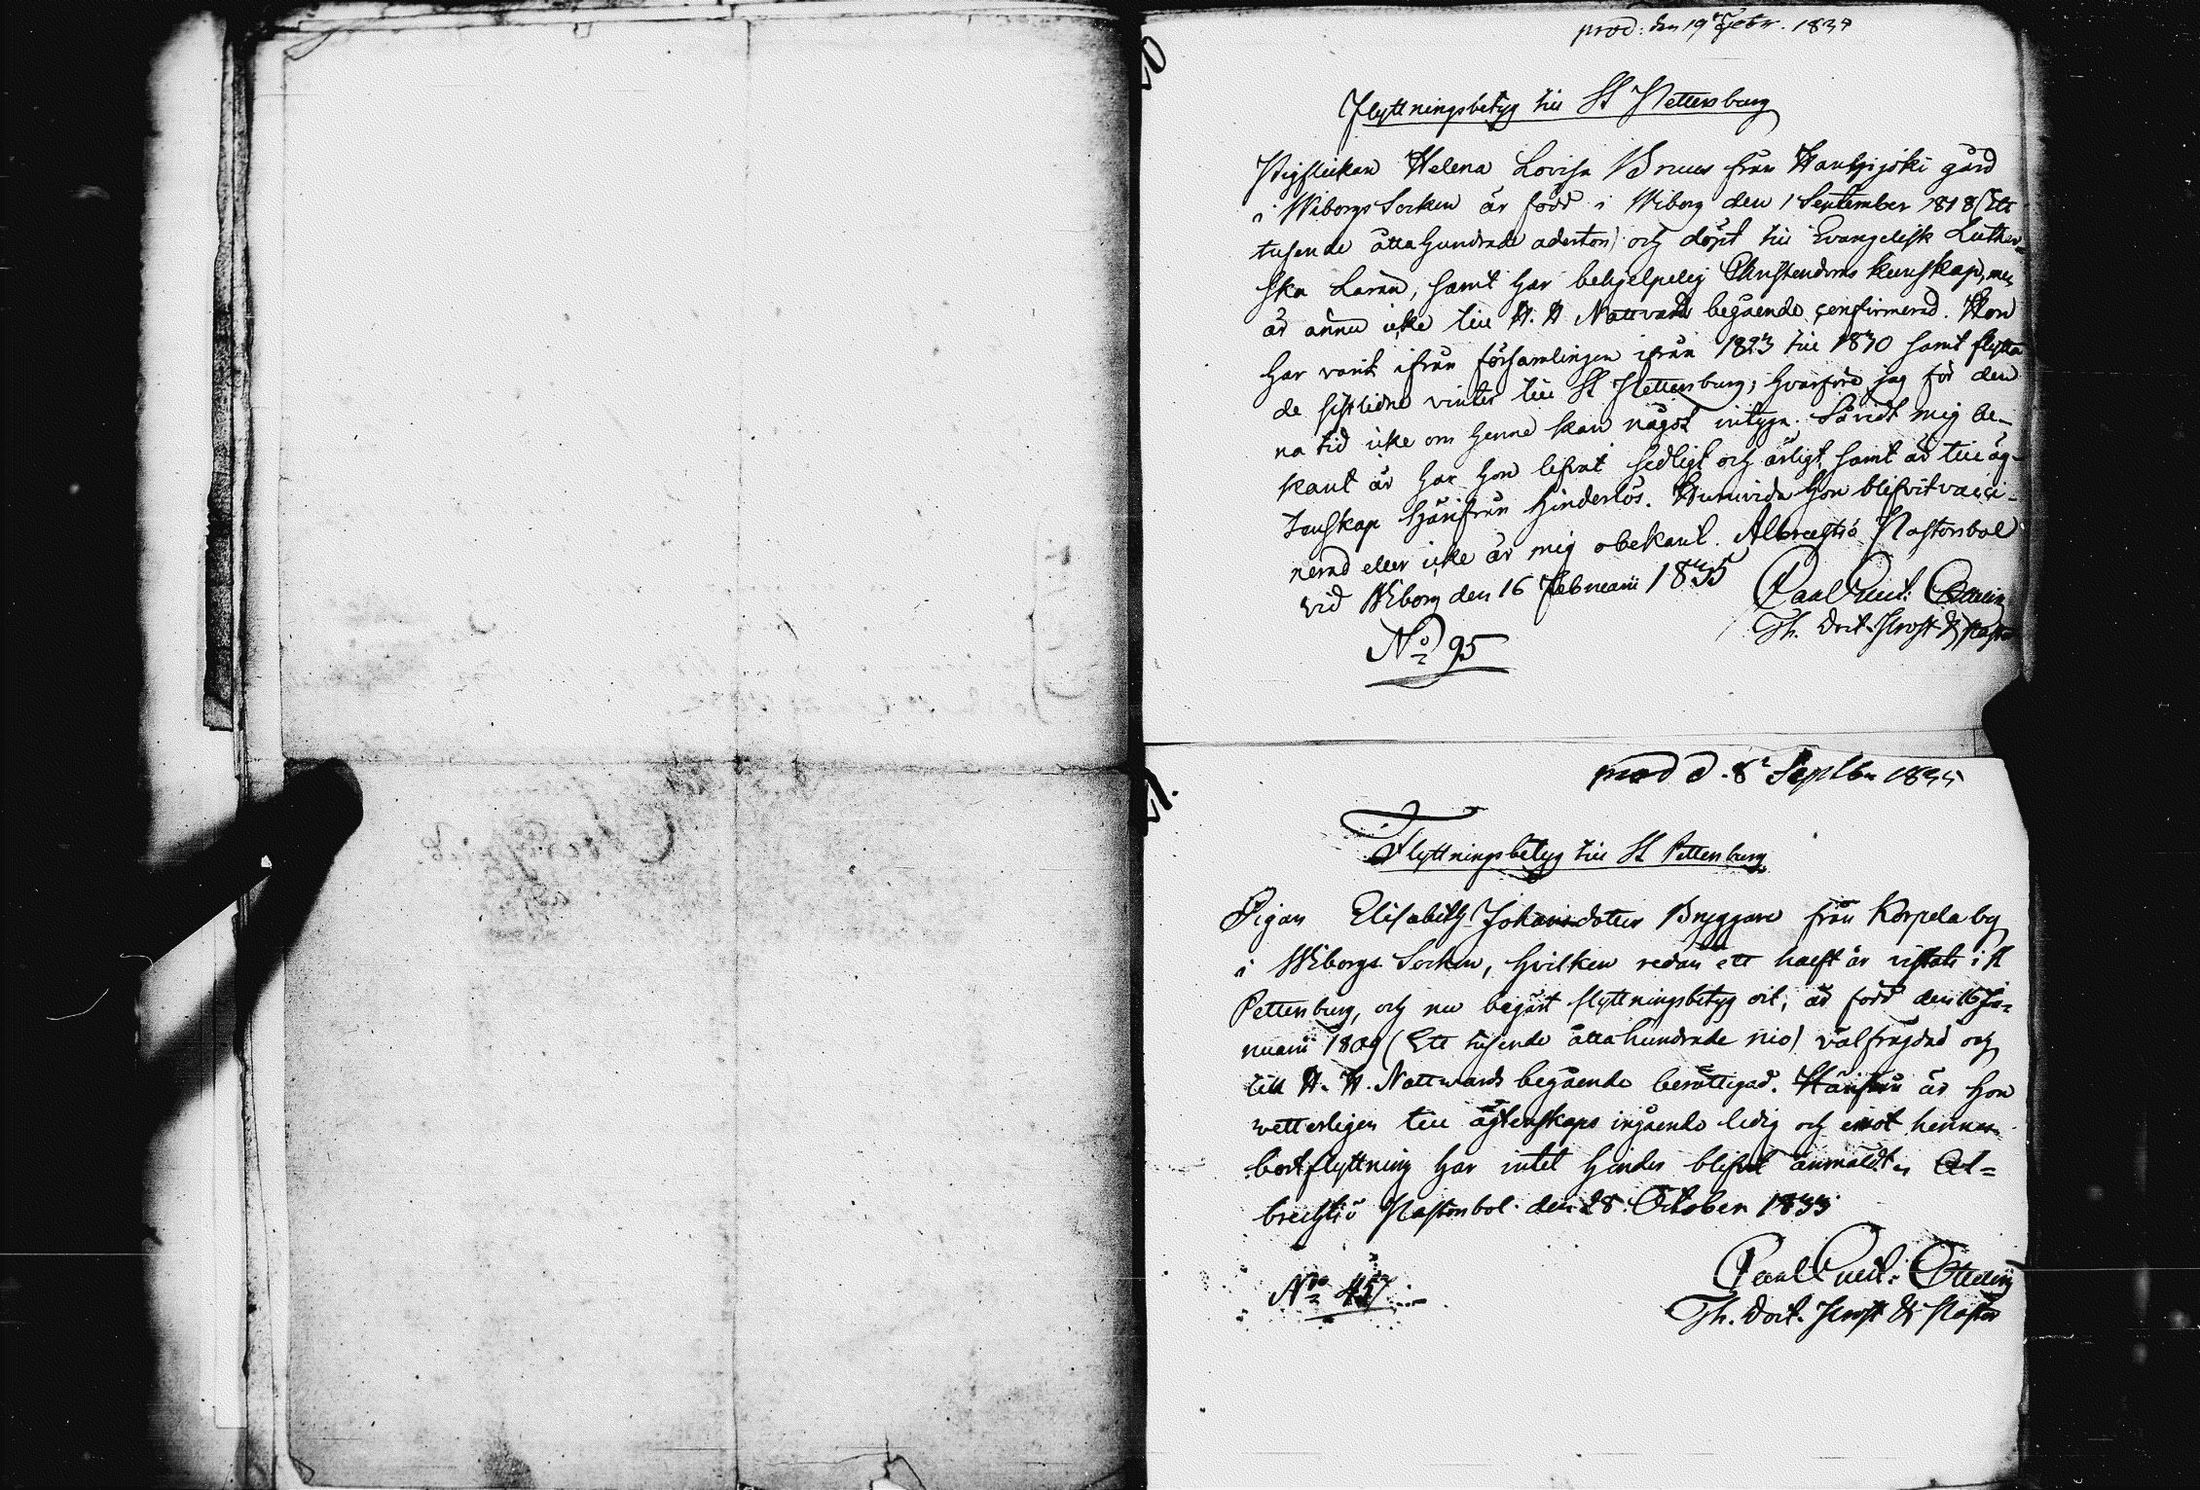 prod: den 19 Febr. 1835
Flyttningsbetyg till St Pettersburg
Pigflickan Helena Lovisa Bruus från Hankijoki gård
i Wiborgs Socken är född i Wiborg den 1 September 1818 (Ett
tusende åttahundrade aderton) och döpt till Evangelisk Luther-
ska Läran, samt har behjelpelig Christendoms kunskap, men
är ännu icke till H. H. Nattvards begående confirmerad. Hon
har varit ifrån församlingen ifrån 1823 till 1830 samt flytta-
de sistledne vinter till St Pettersburg; hvarföre jag för den-
na tid icke om henne kan något intyga. Såvidt mig be-
kant är har hon lefvat sedligt och ärligt, samt är till äg-
tenskap härifrån hinderlös. Huruvida hon blifvit vacci-
nerad eller icke är mig obekant. Albrechtsö Pastorsbol
vid Wiborg den 16 Februarii 1835
Th. Doct. Prost & Pastor
No 95
prod d. 8 Septbr 1835
Flyttningsbetyg till St Pettersburg
Pigan Elisabeth Johansdotter Bryggare från Korpela by
i Wiborgs Socken, hvilken redan ett halft år vistats i St
Pettersburg, och nu begärt flyttningsbetyg dit, är född den 16 Ja-
nuarii 1809 (Ett tusende åttahundrade nio) välfrejdad och
till H. H. Nattvards begående berättigad. Härifrån är hon
vetterligen till ägtenskaps ingående ledig och emot hennes
bortflyttning har intet hinder blifvit anmäldt. Al-
brechtsö Pastorsbol den 28 October 1833
No 457
Th. Doct. Prost & Pastor